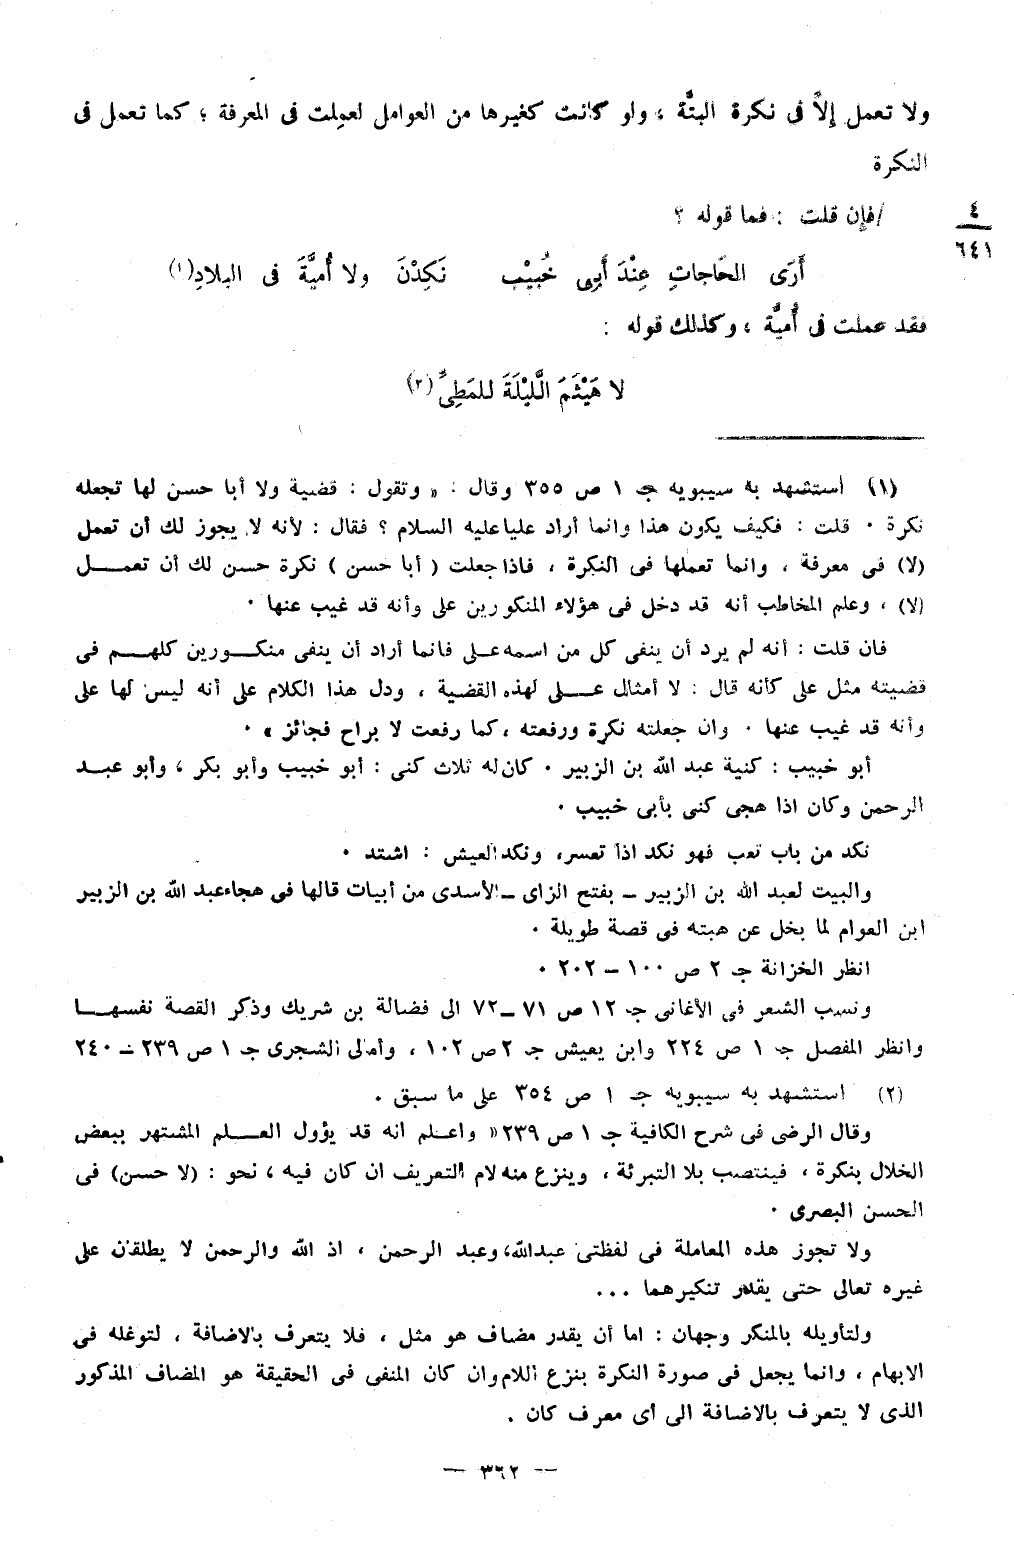 ولا تعمل إلاَّ فى نكرة البتَّة ، ولو كانت كغيرها من العوامل لعمِلت فى المعرفة ؛ كما تعمل فى
النكرة
/فإن قلت : فما قوله ؟
٤
٦٤١
أَرَى الحَاجاتِ عِنْدَ أَبِى خُبيْبٍ نَكِدْنَ ولا أُميَّةَ فى البلادِ(١)
فقد عملت فى أُميَّة ، وكذلك قوله :
لا هَيْثَمَ اللَّيْلَةَ للمَطِىِّ(٢)
(١) أستشهد به سيبويه جـ ١ ص ٣٥٥ وقال : « وتقول : قضية ولا أبا حسن لها تجعله
نكرة ٠ قلت : فكيف يكون هذا وانما أراد عليا عليه السلام ؟ فقال : لأنه لا يجوز لك أن تعمل
(لا) فى معرفة ، وانما تعملها فى النكرة ، فاذا جعلت ( أبا حسن ) نكرة حسن لك أن تعمــل
(لا) ، وعلم المخاطب أنه قد دخل فى هؤلاء المنكورين على وأنه قد غيب عنها ٠
فان قلت : أنه لم يرد أن ينفى كل من اسمه علـى فانما أراد أن ينفى منكــورين كلهــم فى
قضيته مثل على كأنه قال : لا أمثال عــلى لهذه القضية ، ودل هذا الكلام على أنه ليس لها على
وأنه قد غيب عنها ٠ وان جعلته نكرة ورفعته ، كما رفعت لا براح فجائز » ٠
أبو خبيب : كنية عبد الله بن الزبير ٠ كان له ثلاث كنى : أبو خبيب وأبو بكر ، وأبو عبــد
الرحمن وكان اذا هجى كنى بأبى خبيب ٠
نكد من باب تعب فهو نكد اذا تعسر، ونكد العيش : اشتد ٠
والبيت لعبد الله بن الزبير ــ بفتح الزاى ــ الأسدى من أبيات قالها فى هجاء عبد الله بن الزبير
ابن العوام لما بخل عن هبته فى قصة طويلة ٠
انظر الخزانة جـ ٢ ص ١٠٠ – ٢٠٢ ٠
ونسب الشعر فى الأغانى جـ ١٢ ص ٧١ ــ ٧٢ الى فضالة بن شريك وذكر القصة نفسهــا
وانظر المفصل جـ ١ ص ٢٢٤ وابن يعيش جـ ٢ ص ١٠٢ ، وأمالى الشجرى جـ ١ ص ٢٣٩ ــ ٢٤٠
(٢) استشهد به سيبويه جـ ١ ص ٣٥٤ على ما سبق .
وقال الرضى فى شرح الكافية جـ ١ ص ٢٣٩ « واعـلم انه قد يؤول العــلم المشتهر ببعض
الخلال بنكرة ، فينتصب بلا التبرئة ، وينزع منه لام التعريف ان كان فيه ، نحو : (لا حسن) فى
الحسن البصرى ٠
ولا تجوز هذه المعاملة فى لفظتى عبدالله، وعبد الرحمن ، اذ الله والرحمن لا يطلقان على
غيره تعالى حتى يقدر تنكيرهما ...
ولتأويله بالمنكر وجهان : اما أن يقدر مضاف هو مثل ، فلا يتعرف بالاضافة ، لتوغله فى
الابهام ، وانما يجعل فى صورة النكرة بنزع اللام وان كان المنفى فى الحقيقة هو المضاف المذكور
الذى لا يتعرف بالاضافة الى أى معرف كان .
— ٣٦٢ —